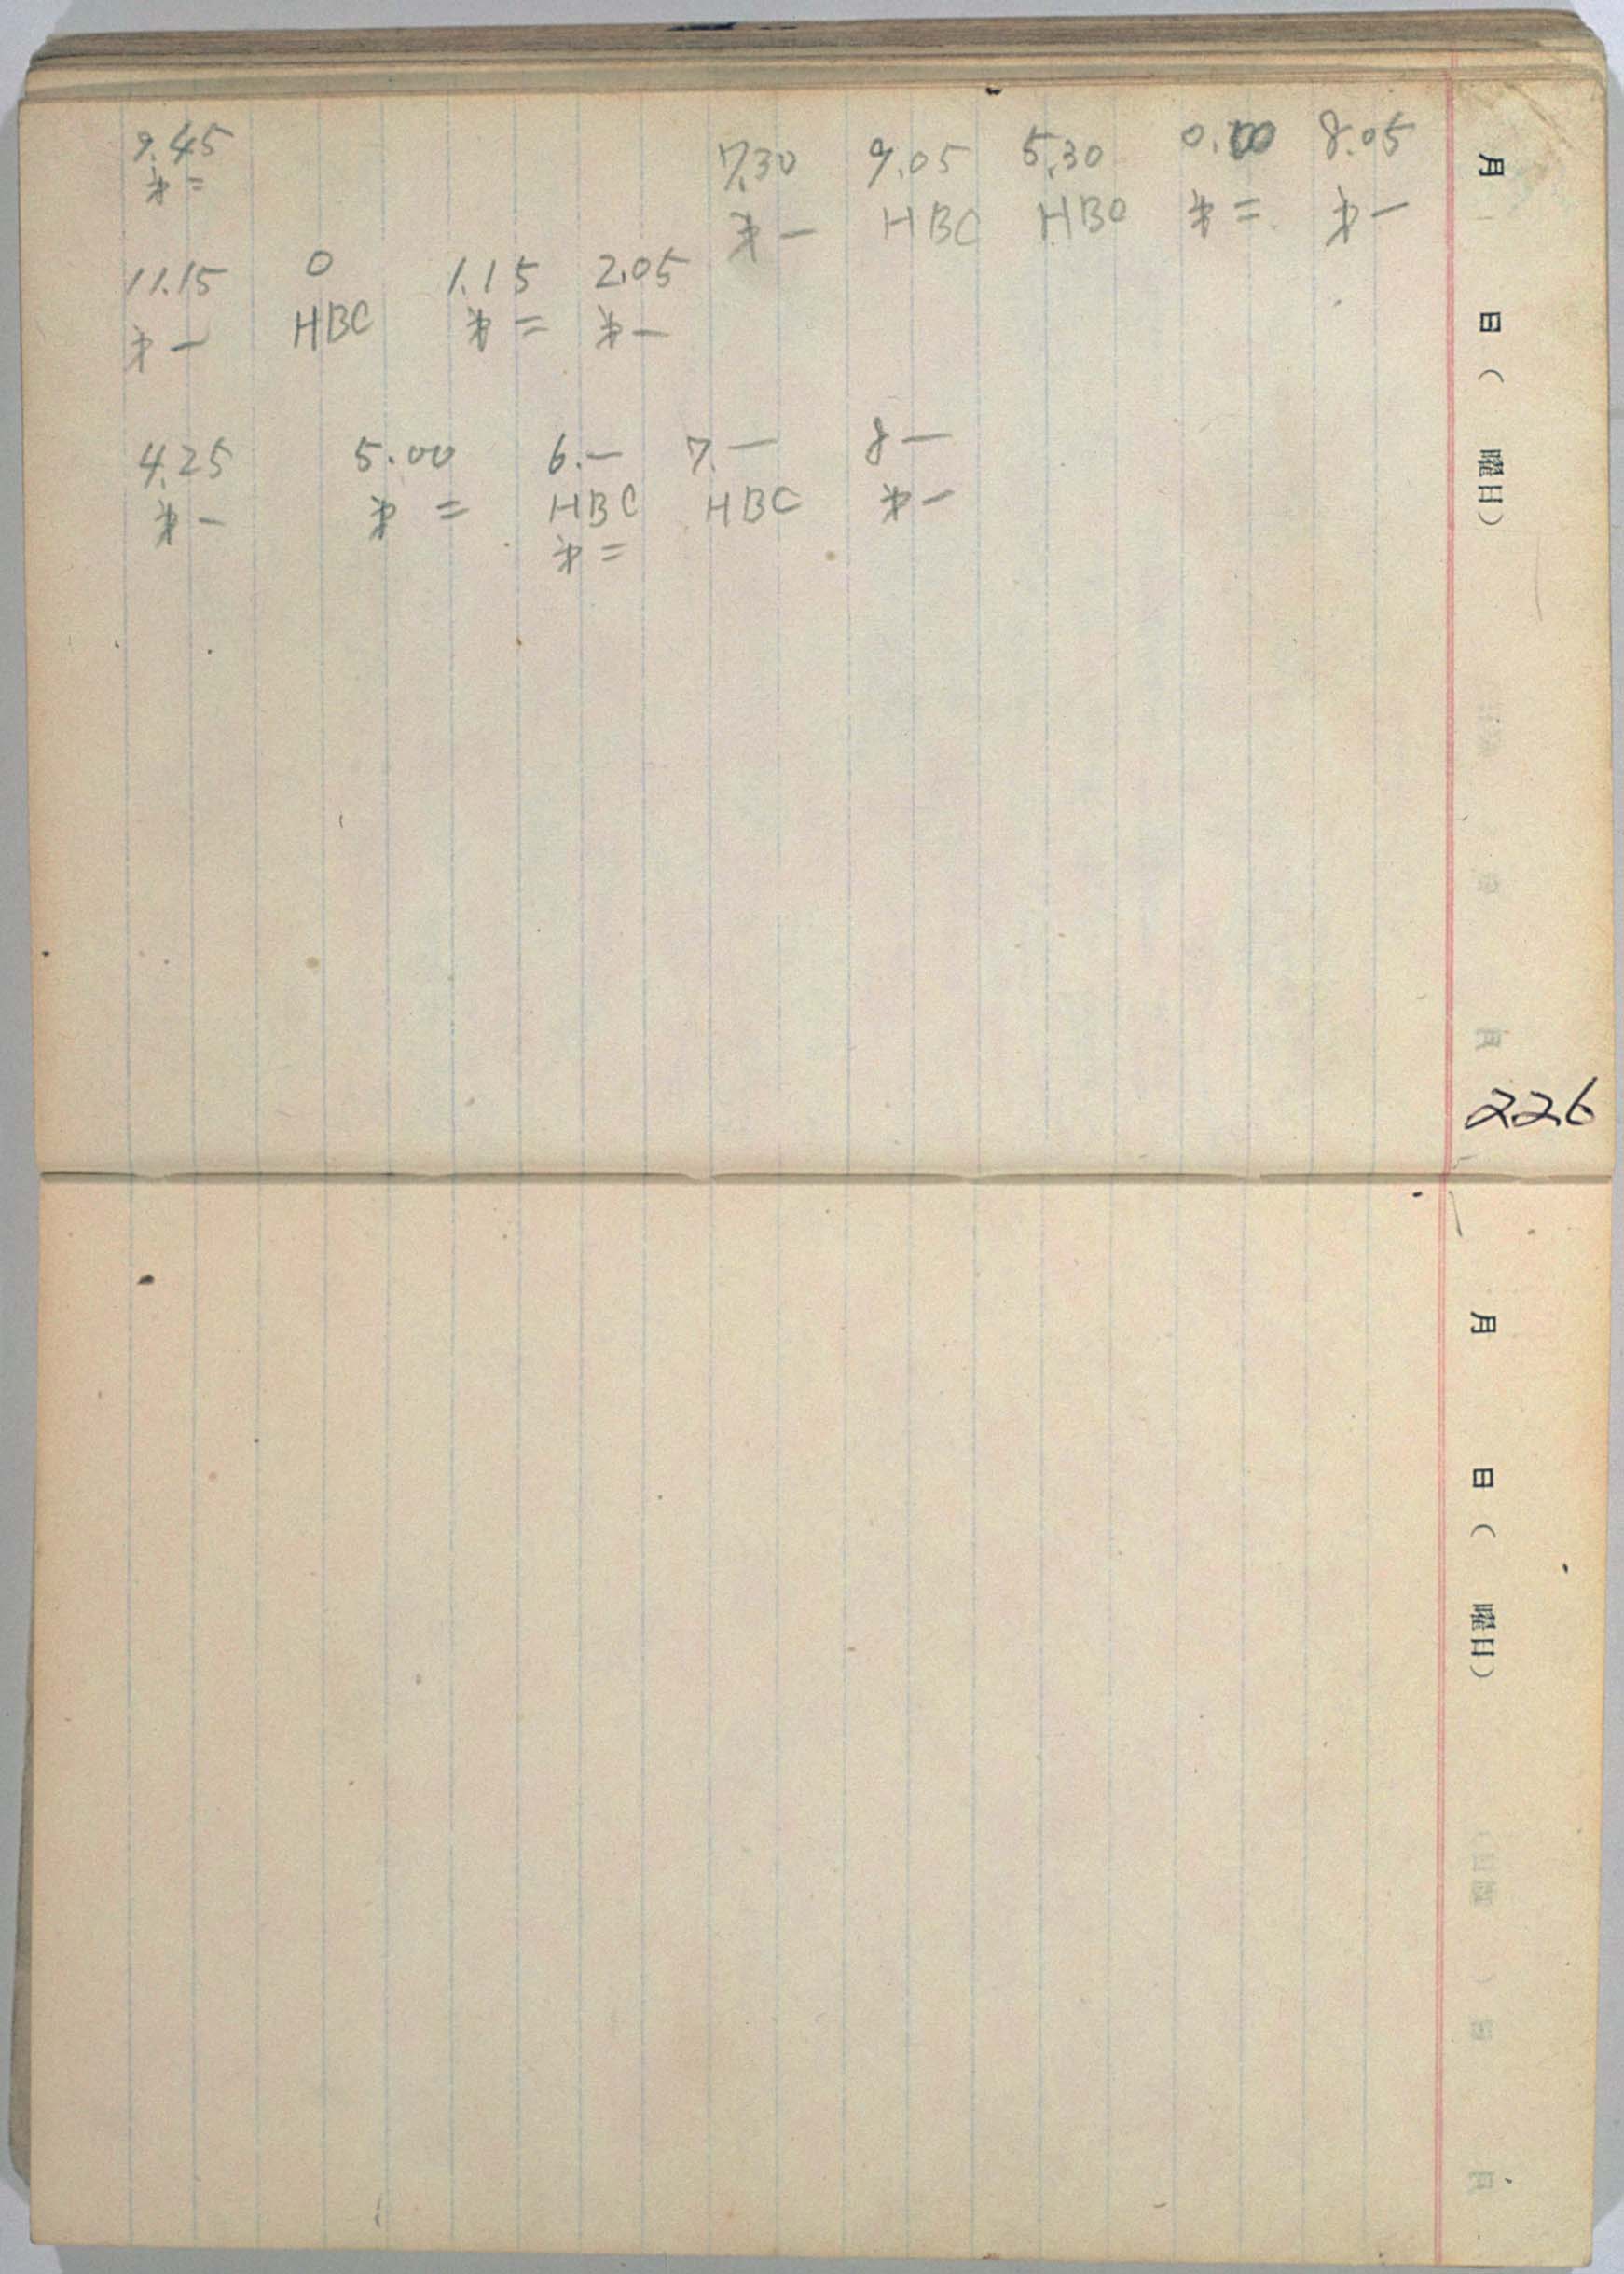 9.45 7.30 9.05 5.30 0.00 8.05
オ二 オ一 HBC HBC オ二 オ一
11.15 0 1.15 2.05
オ一 HBC オ二 オ一
4.25 5.00 6.— 7.— 8—
オ一 オ二 HBC HBC オ一
オ二
月 日( 曜日)
226
月 日( 曜日)